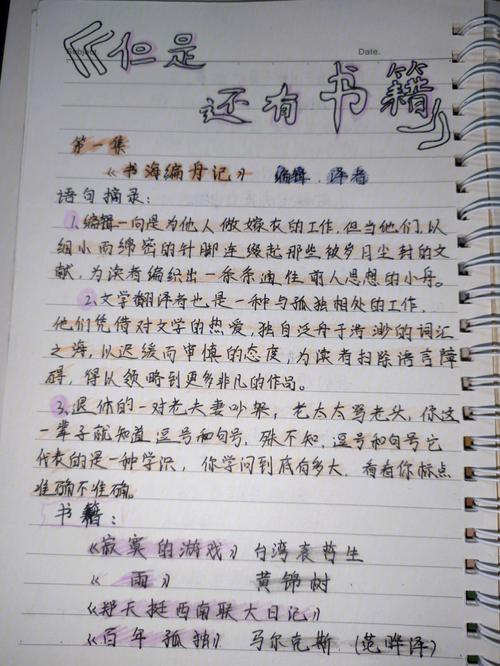 《但是
Date.
还有书籍》
第一集
《书海编舟记》 编辑、译者
语句摘录：
1.编辑一向是为他人做嫁衣的工作,但当他们,以
细小而绵密的针脚连缀起那些被岁月尘封的文
献,为读者编织出一条条通往前人思想的小舟。
2.文学翻译者也是一种与孤独相处的工作,
他们凭借对文学的热爱,独自泛舟于浩渺的词汇
之海,以迟缓而审慎的态度,为读者扫除语言障
碍,得以领略到更多非凡的作品。
3.退休的一对老夫妻吵架,老太太骂老头,你这
一辈子就知道逗号和句号,殊不知,逗号和句号它
代表的是一种学识,你学问到底有多大,看看你标点
准确不准确。
书籍：
《寂寞的游戏》 台湾袁哲生
《雨》 黄锦树
《郑天挺西南联大日记》
《百年孤独》 马尔克斯 (范晔译)